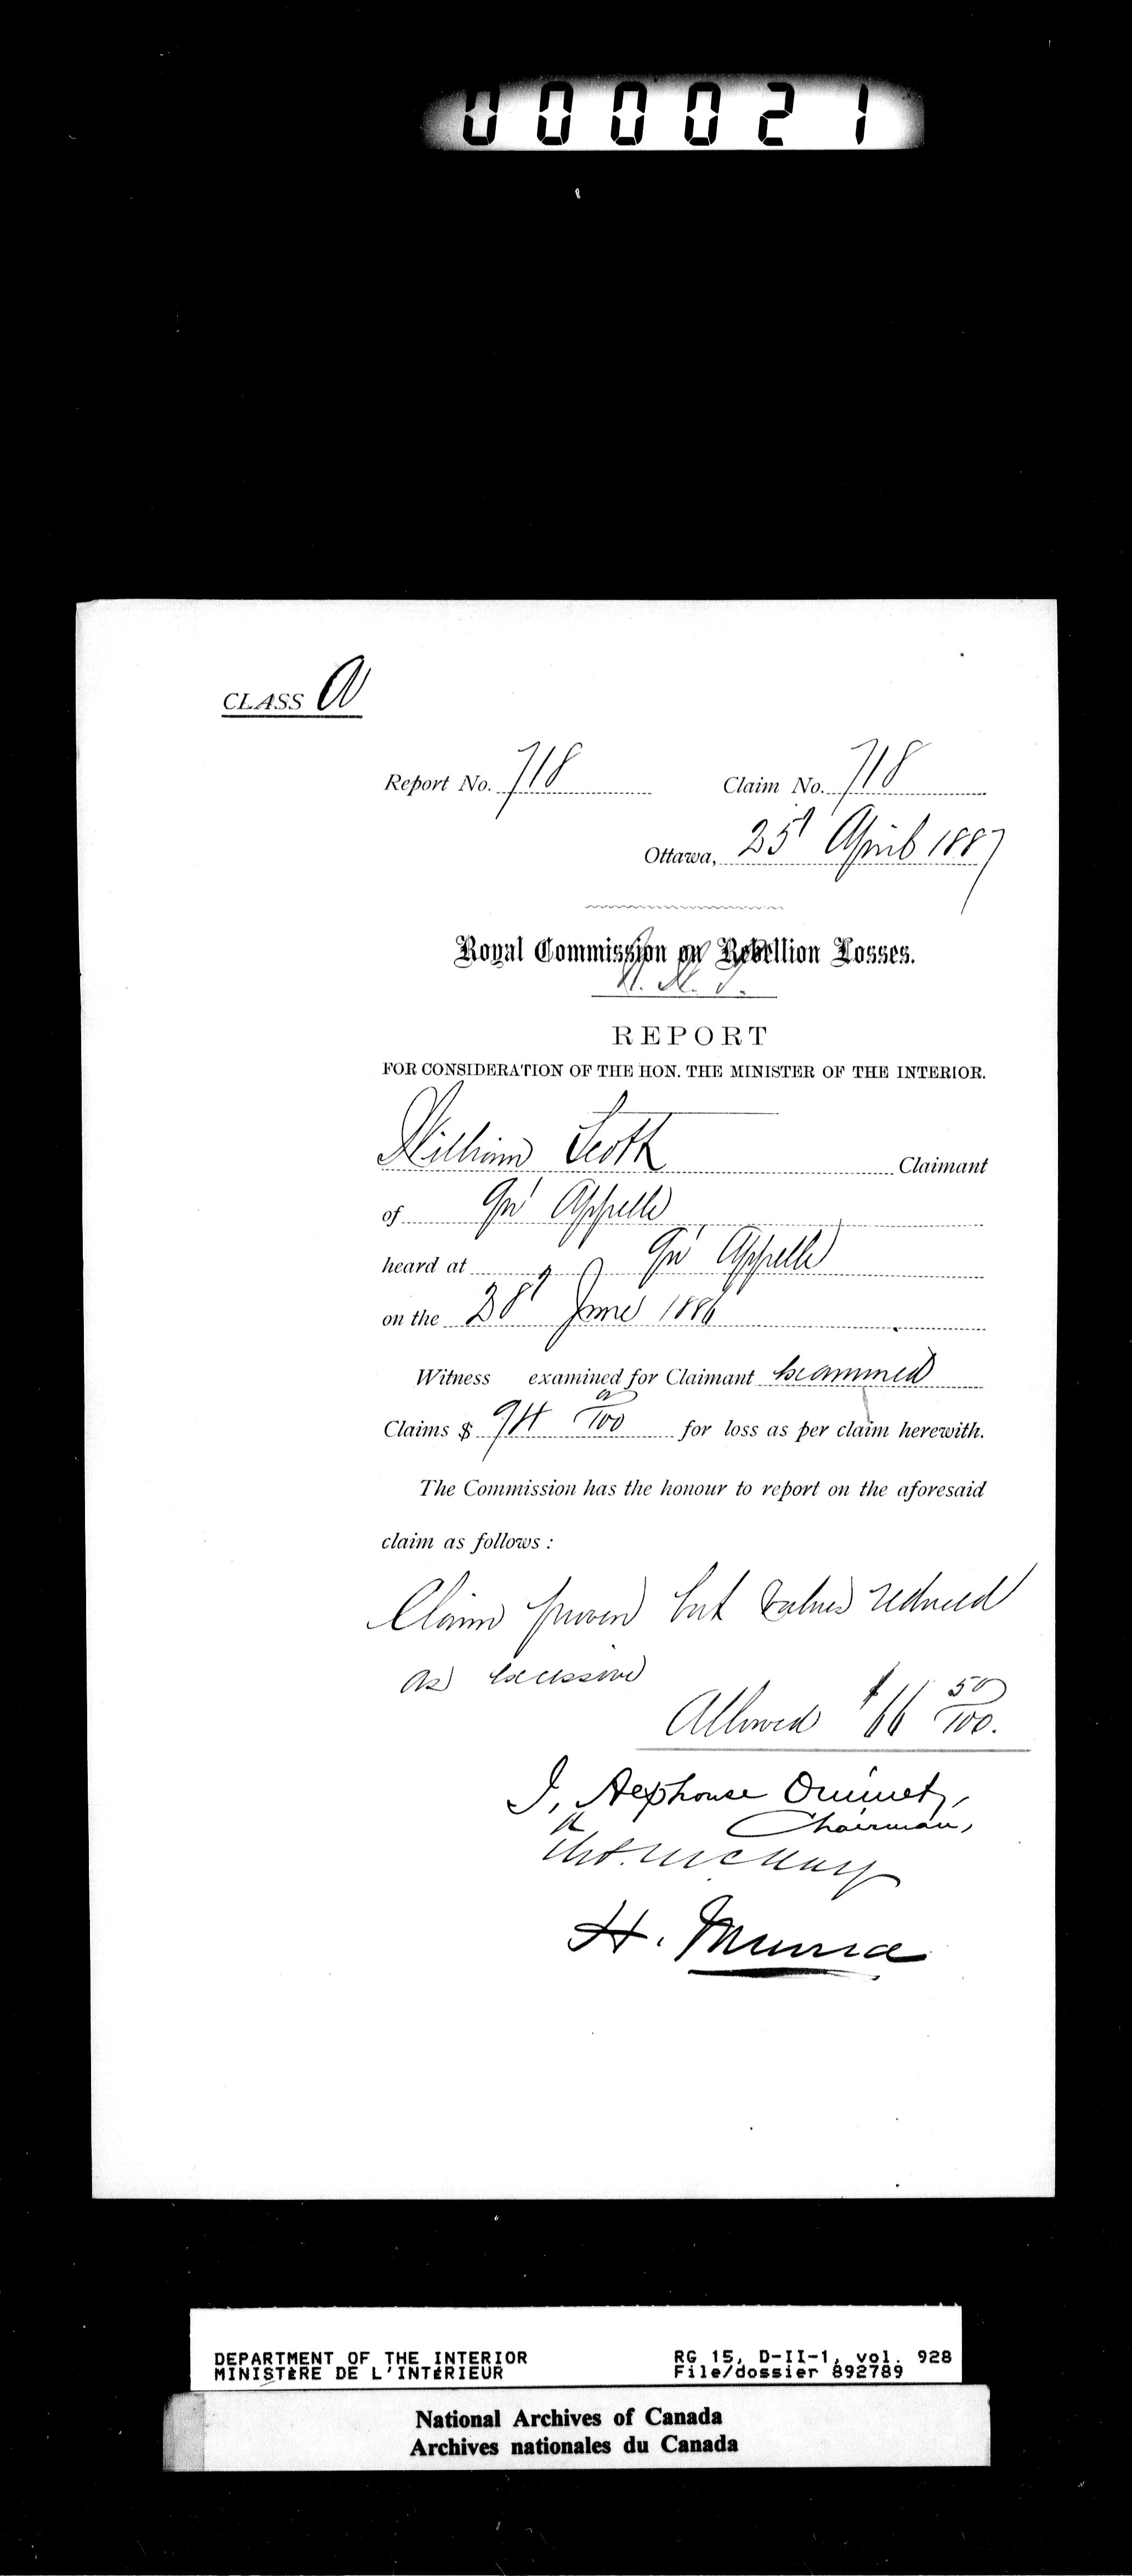 000021
CLASS A
Report No. 718 Claim No. 718
Ottawa, 25th April 1887
Royal Commission on Rebellion Losses.
REPORT
FOR CONSIDERATION OF THE HON. THE MINISTER OF THE INTERIOR.
William Scott Claimant
of Qu'Appelle
heard at Qu'Appelle
on the 28th June 1886
Witness examined for Claimant Examined
Claims $ 94 /100 for loss as per claim herewith.
The Commission has the honour to report on the aforesaid
claim as follows :
Claim proven but values reduced
as excessive
Allowed $66 50/100.
J, Alphonse Ouimet,
Chairman,
Thos. McKay
H. Muma
DEPARTMENT OF THE INTERIOR RG 15, D-II-1, vol. 928
MINISTÈRE DE L'INTÉRIEUR File/dossier 892789
National Archives of Canada
Archives nationales du Canada